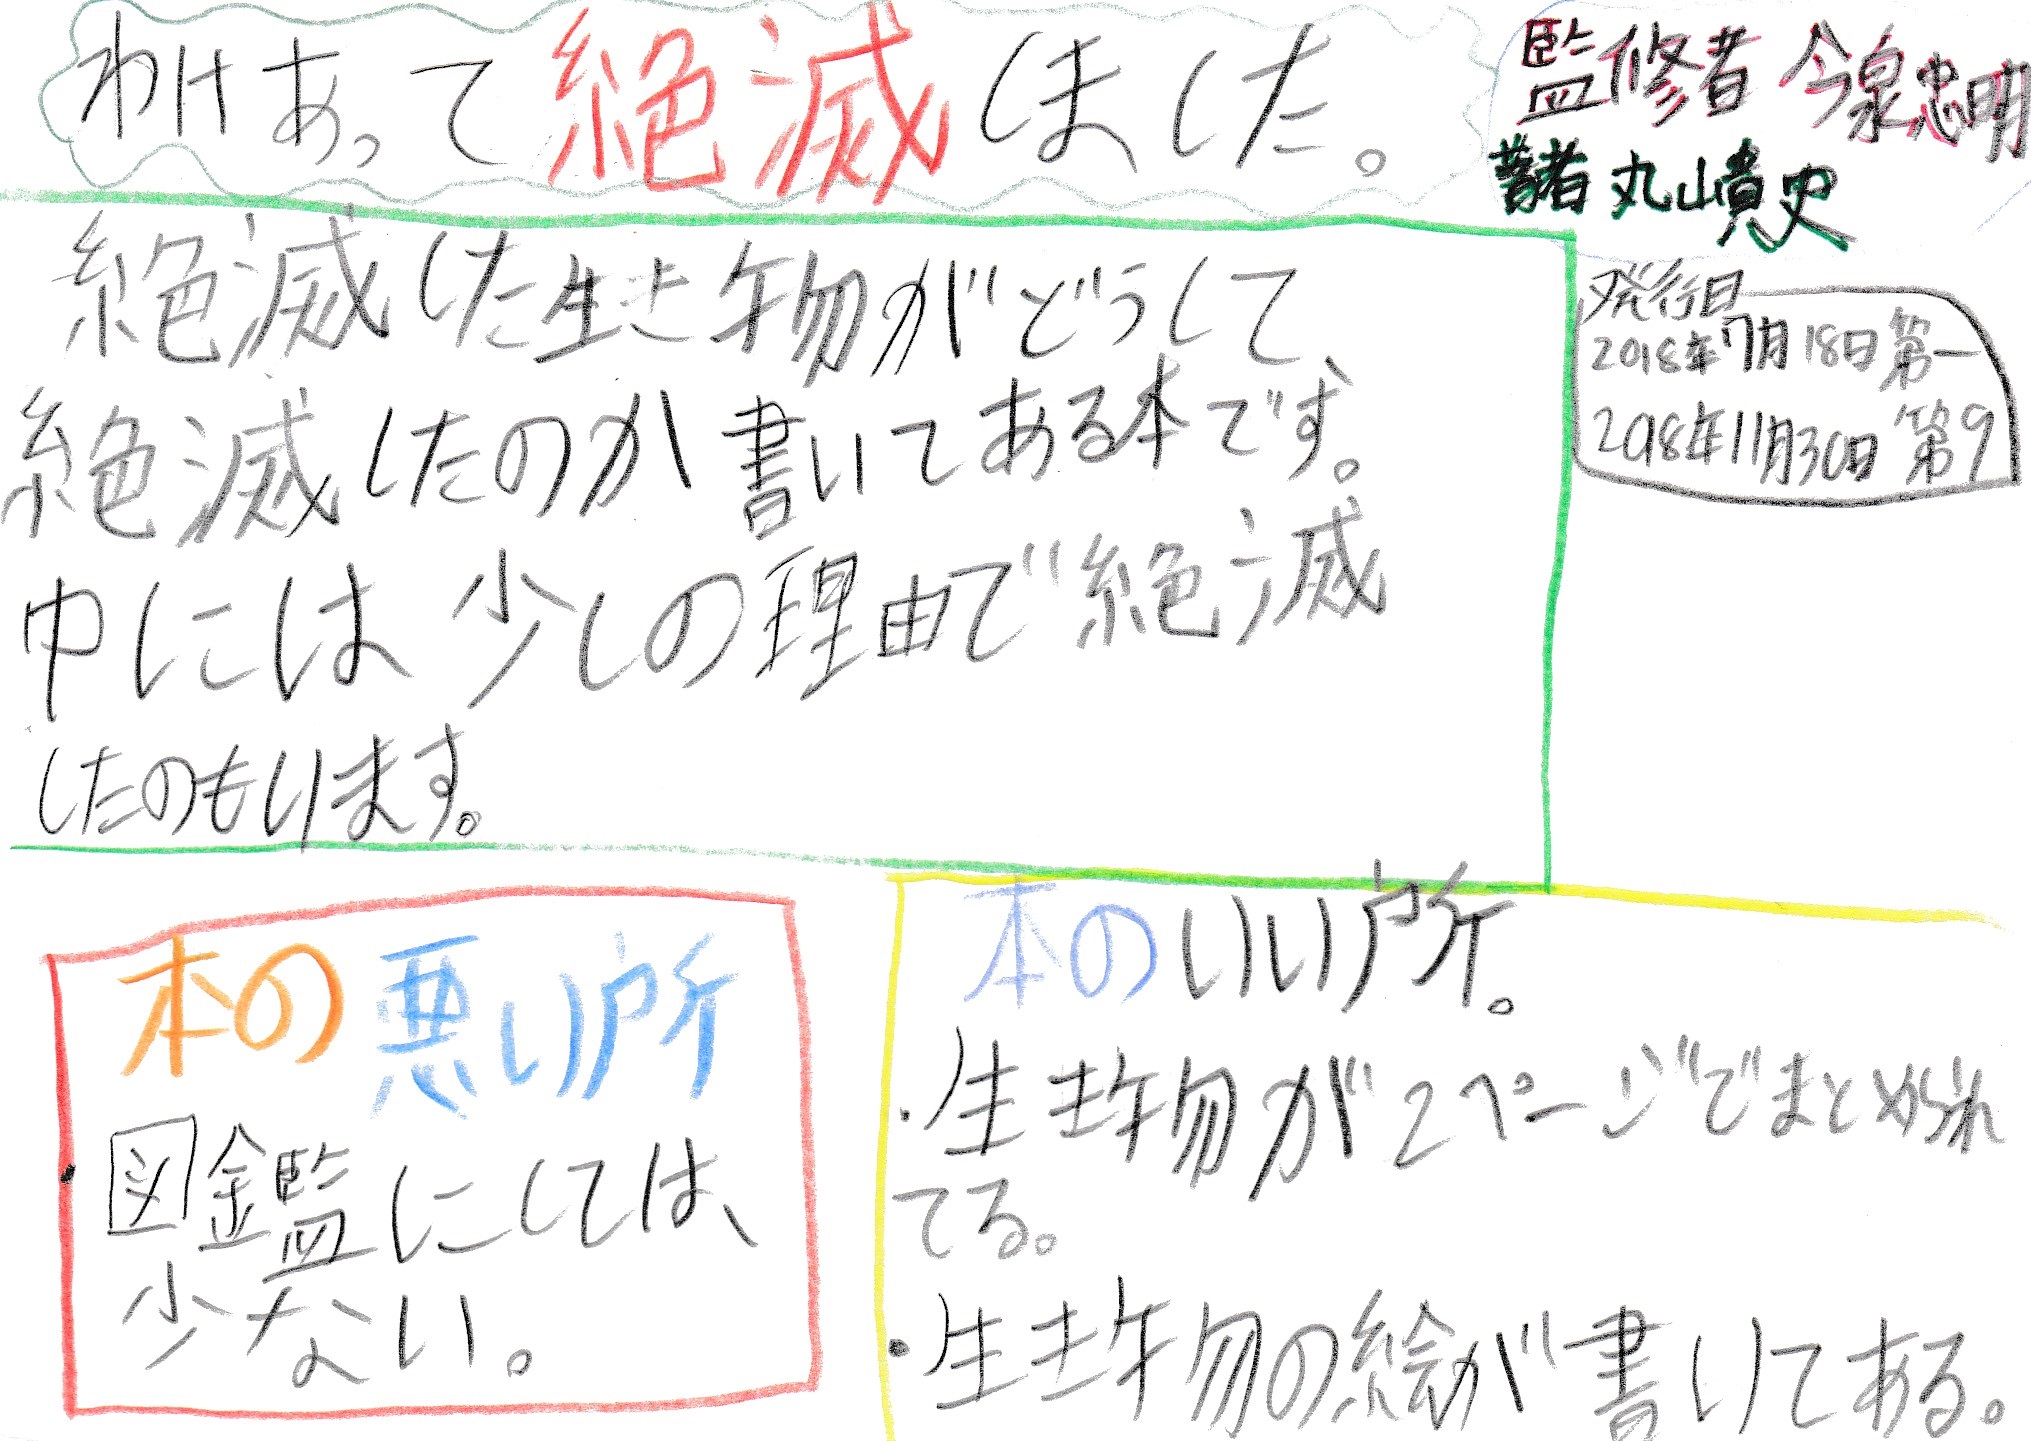 わけあって絶滅しました。
監修者 今泉忠明
著者 丸山貴史
発行日
2018年7月18日 第一
2018年11月30日 第9
絶滅した生き物がどうして
絶滅したのか書いてある本です。
中には少しの理由で絶滅
したのもいます。
本の悪い所
・図鑑にしては、
少ない。
本のいい所。
・生き物が2ページでまとめられ
てる。
・生き物の絵が書いてある。